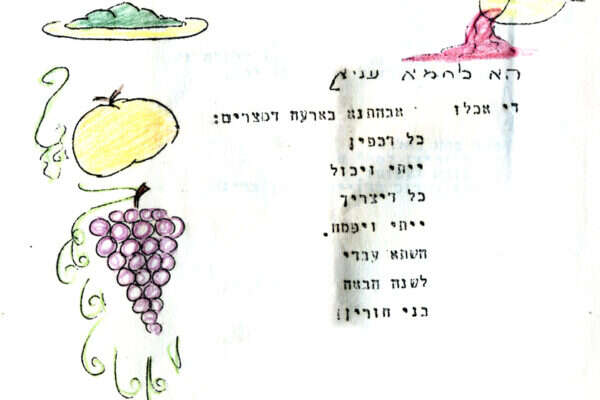 הא לחמא עניא
די אכלו אבהתנא בארעה דמצרים:
כל דכפין
ייתי ויכול
כל דיצריך
ייתי ויפסח.
השתא עבדי
לשנה הבאה
בני חורין!